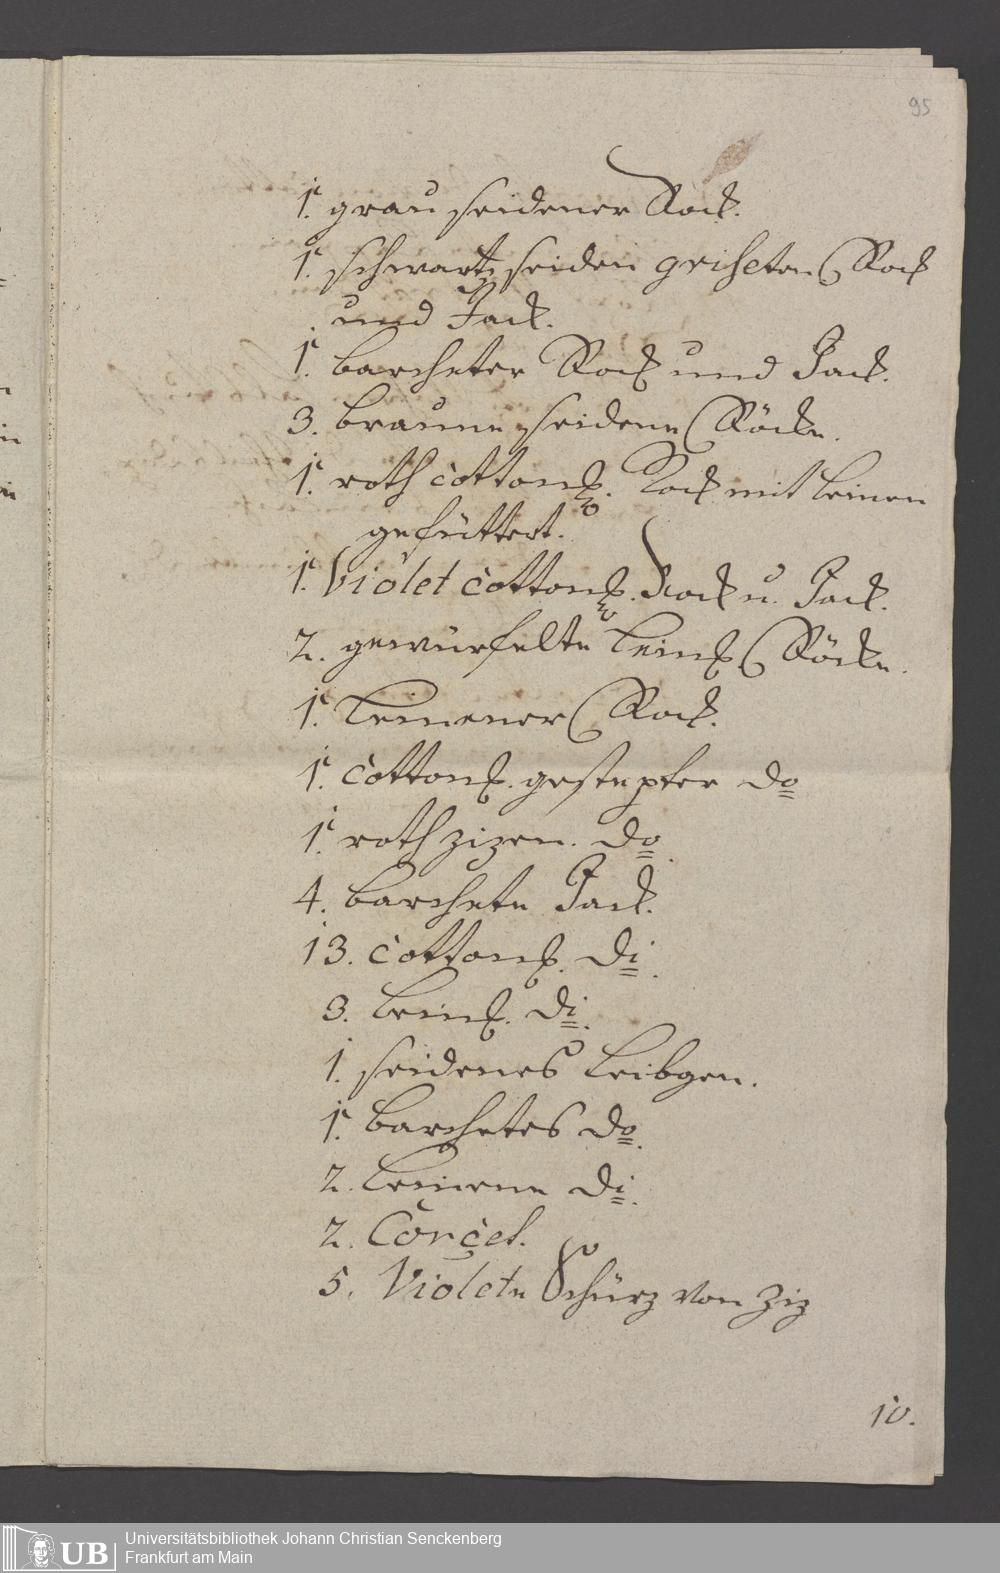 95
1. grau seidener Rock.
1. schwartz seiden griseten Rock
und Jack.
1. barcheter Rock und Jack.
3. braune seidene Röcke.
1. roth cotton. Rock mit leinen
gefüttert.
1. Violet cotton. Rock u. Jack.
2. gewürfelte lein. Röcke.
1. leinener Rock.
1. cotton. gestepter do
1. roth zizen. do.
4. barchete Jack.
13. cotton. di.
3. lein. di.
1. seidenes Leibgen.
1. barchetes do.
2. leinene di.
2. Corcet.
5. Violete Schürz von Ziz
10.
UB
Universitätsbibliothek Johann Christian Senckenberg
Frankfurt am Main